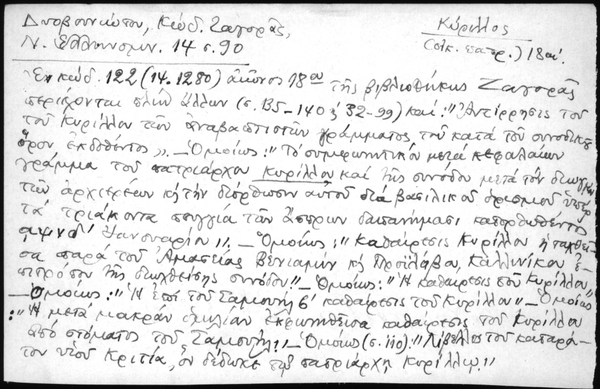 Δυοβουνιώτου, Κώδ. Ζαγορᾶς,
Ν. Ἑλληνομν. 14 σ. 90
Κύριλλος
(οἰκ. πατρ.) 18 αἰ.
Ἐν κώδ. 122 (14.1280) αἰῶνος 18ου τῆς βιβλιοθήκης Ζαγορᾶς
περιέχονται πλὴν ἄλλων (σ. 135-140 ϗ 32-99) καί: "Ἀντίρρησις τοῦ
τοῦ Κυρίλλου τῶν ἀναβαπτιστῶν γράμματος τοῦ κατὰ τοῦ συνοδικοῦ
ὅρου, ἐκδοθέντος". — Ὁμοίως: "Τὸ συμφωνητικὸν μετὰ κεφαλαίων
γράμμα τοῦ πατριάρχου Κυρίλλου καὶ τῆς συνόδου μετὰ τὸν
τῶν ἀρχιερέων ϗ τὴν διόρθωσιν αὐτοῦ διὰ βασιλικοῦ ὁρισμοῦ ὑπὲρ
τὰ τριάκοντα πουγγία τῶν ἄσπρων δαπανήμασι κατορθωθέντος
αψνδ' Ἰανουαρίῳ". — Ὁμοίως: "Καθαίρεσις Κυρίλλου ἡ
σα παρὰ τοῦ Ἀμασείας Βενιαμὶν ϗ Προϊλάβου Καλλινίκου
τῆς συνόδου". — Ὁμοίως: "Ἡ καθαίρεσις τοῦ Κυρίλλου"
— Ὁμοίως: "Ἡ ἐπὶ τοῦ Σαμουὴλ β' καθαίρεσις τοῦ Κυρίλλου" — Ὁμοίως
: "Ἡ μετὰ μακρὰν ὁμιλίαν ἐκφωνηθεῖσα καθαίρεσις τοῦ Κυρίλλου
ἀπὸ στόματος τοῦ Σαμουήλ". — Ὁμοίως (σ. 110): "Λίβελλος τοῦ καταρά-
του υἱοῦ Κριτία, ὃν δέδωκε τῷ πατριάρχῃ Κυρίλλῳ."